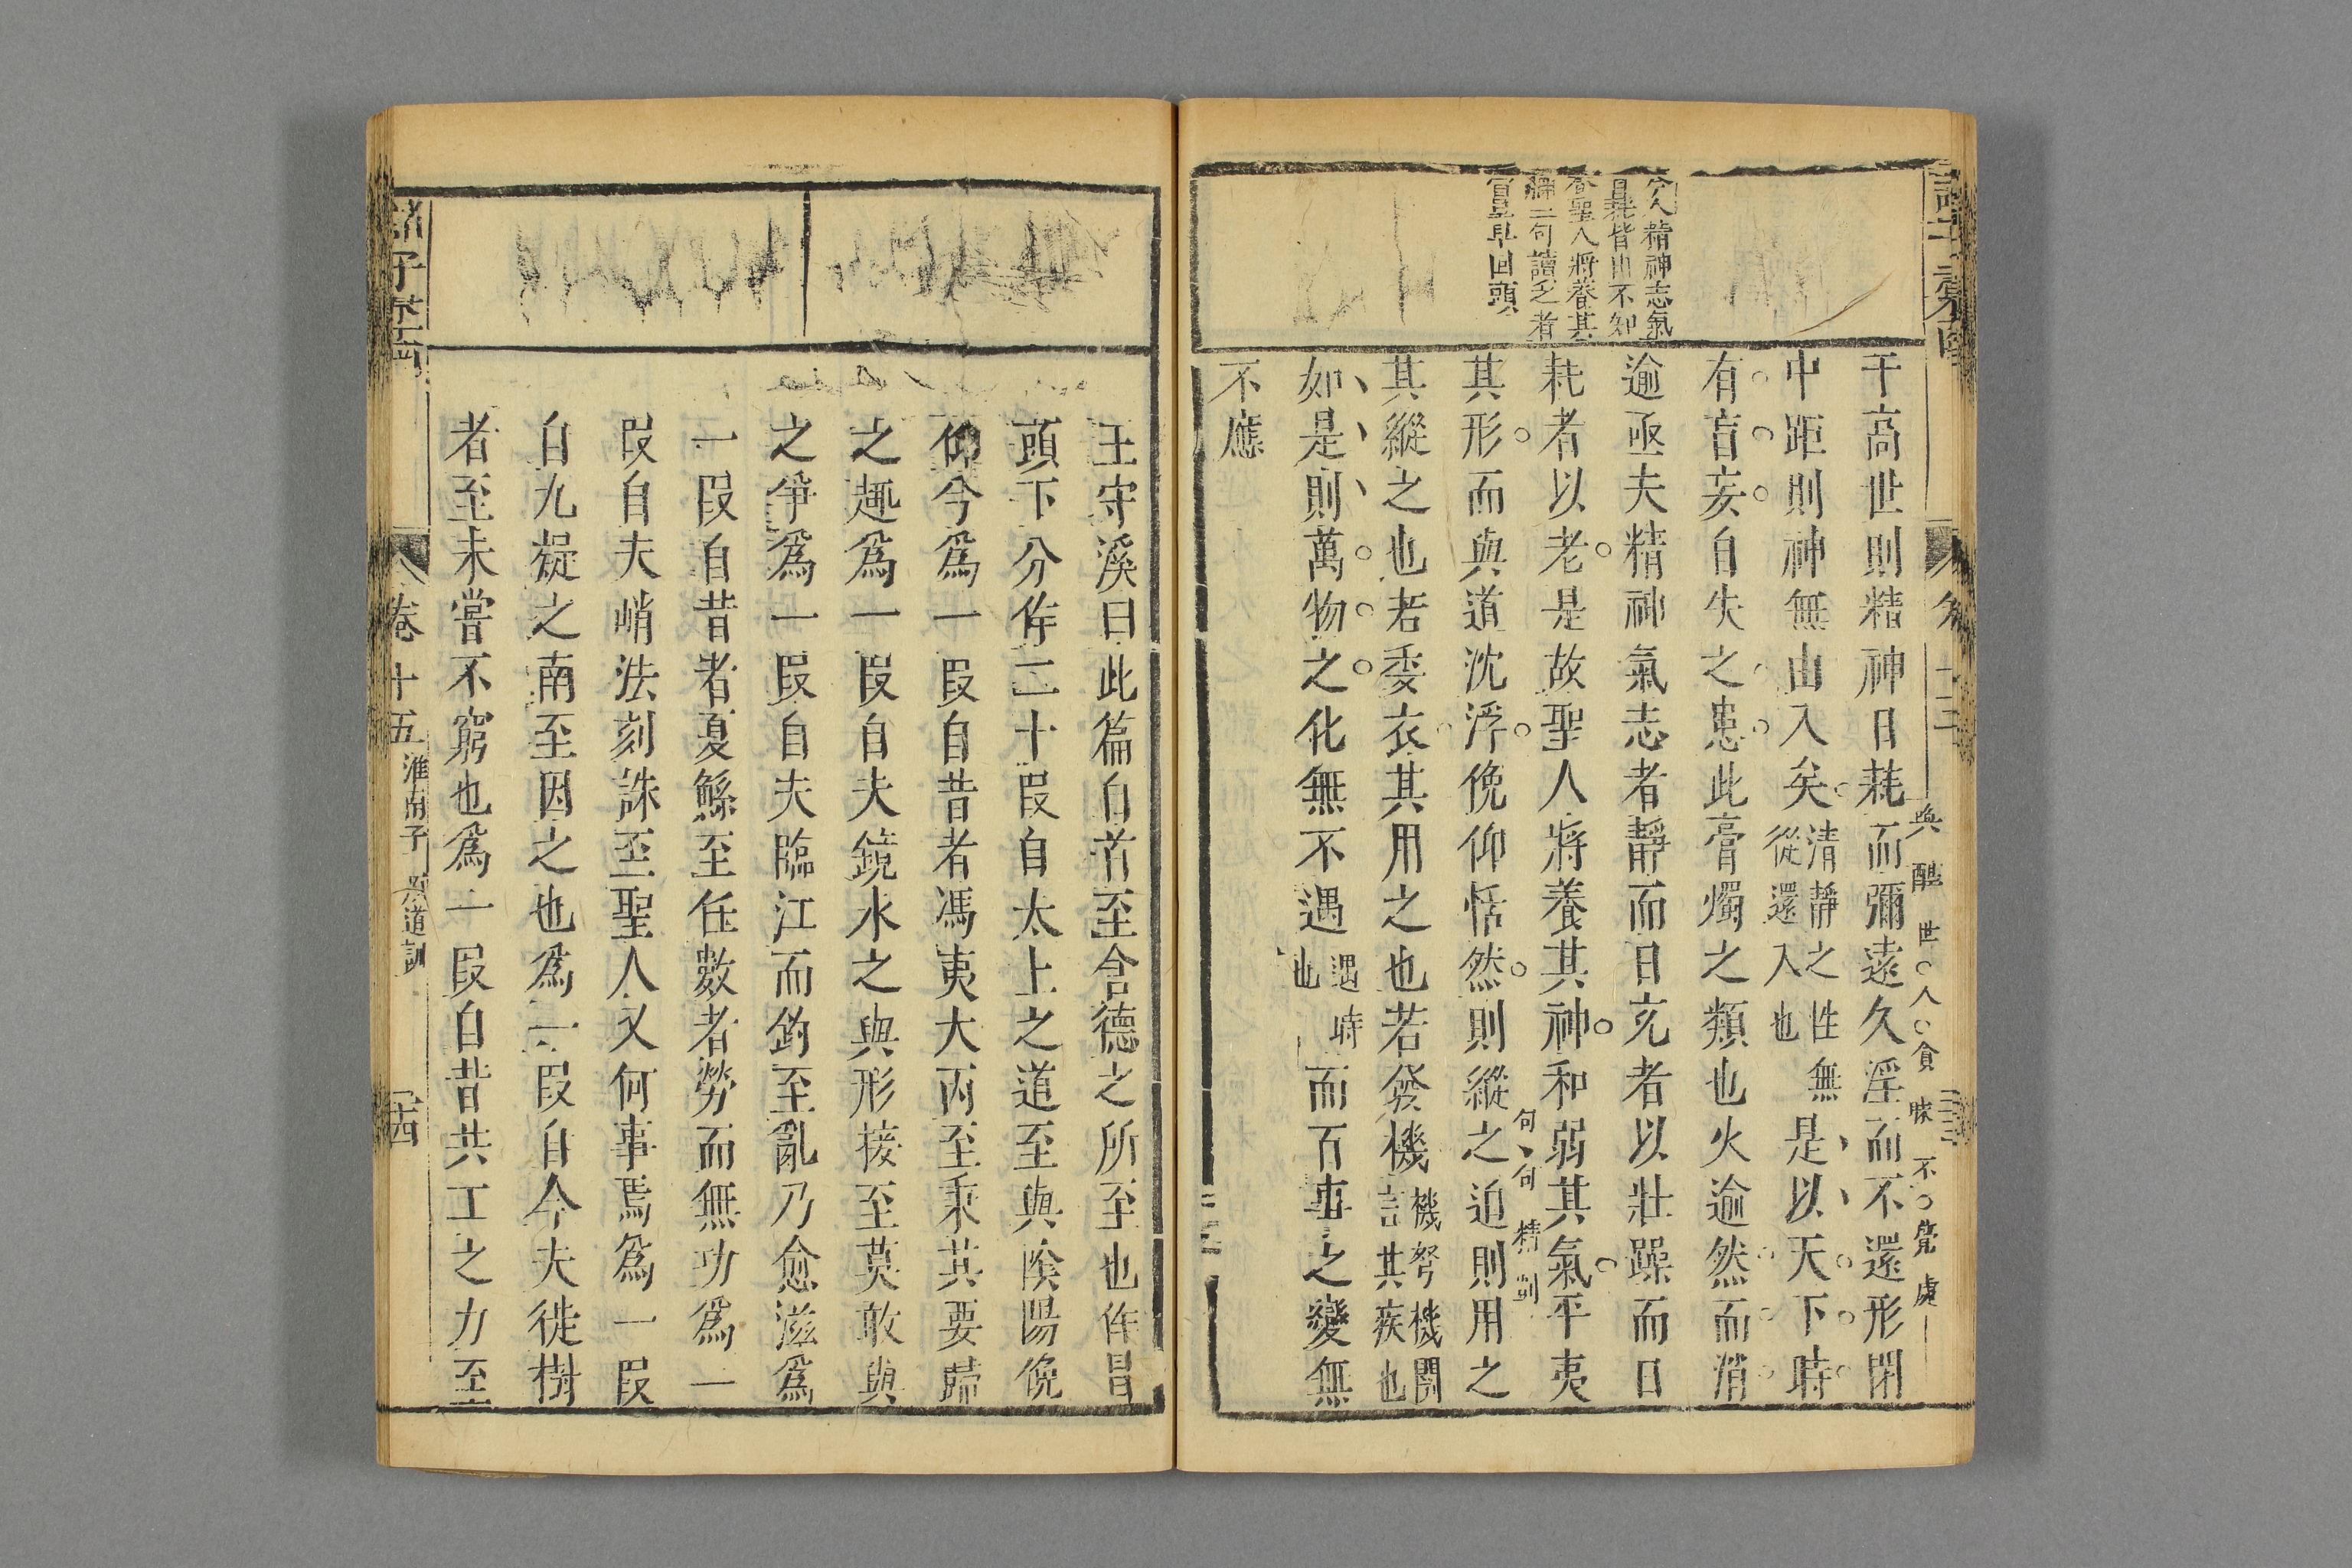 喚醒世人貪昧不覺處
于高世則精神日耗而彌遠久淫而不還形閉
中距則神無由入矣清靜之性無從還入也是以天下時
有盲妄自失之患此膏燭之類也火逾然而消
逾亟夫精神氣志者靜而日充者以壯躁而日
耗者以老是故聖人將養其神和弱其氣平夷
句句精到
其形而與道沈浮俛仰恬然則縱之迫則用之
其縱之也若委衣其用之也若發機機弩機關言其疾也
如是則萬物之化無不遇遇時也而百事之變無
不應
人精神志氣
日耗皆由不知
聖人將養其
神二句讀之者
宜早回頭
王守溪曰此篇自首至含德之所至也作冒
頭下分作二十段自太上之道至與陰陽俛
仰今為一段自昔者馮夷大丙至秉其要歸
之趣為一段自夫鏡水之與形接至莫敢與
之爭為一段自夫臨江而釣至亂乃愈滋為
一段自昔者夏鯀至任數者勞而無功為一
段自夫峭法刻誅至聖人又何事焉為一段
自九疑之南至因之也為一段自今夫徙樹
者至未嘗不窮也為一段自昔共工之力至
卷十五 淮南子 原道訓 十四